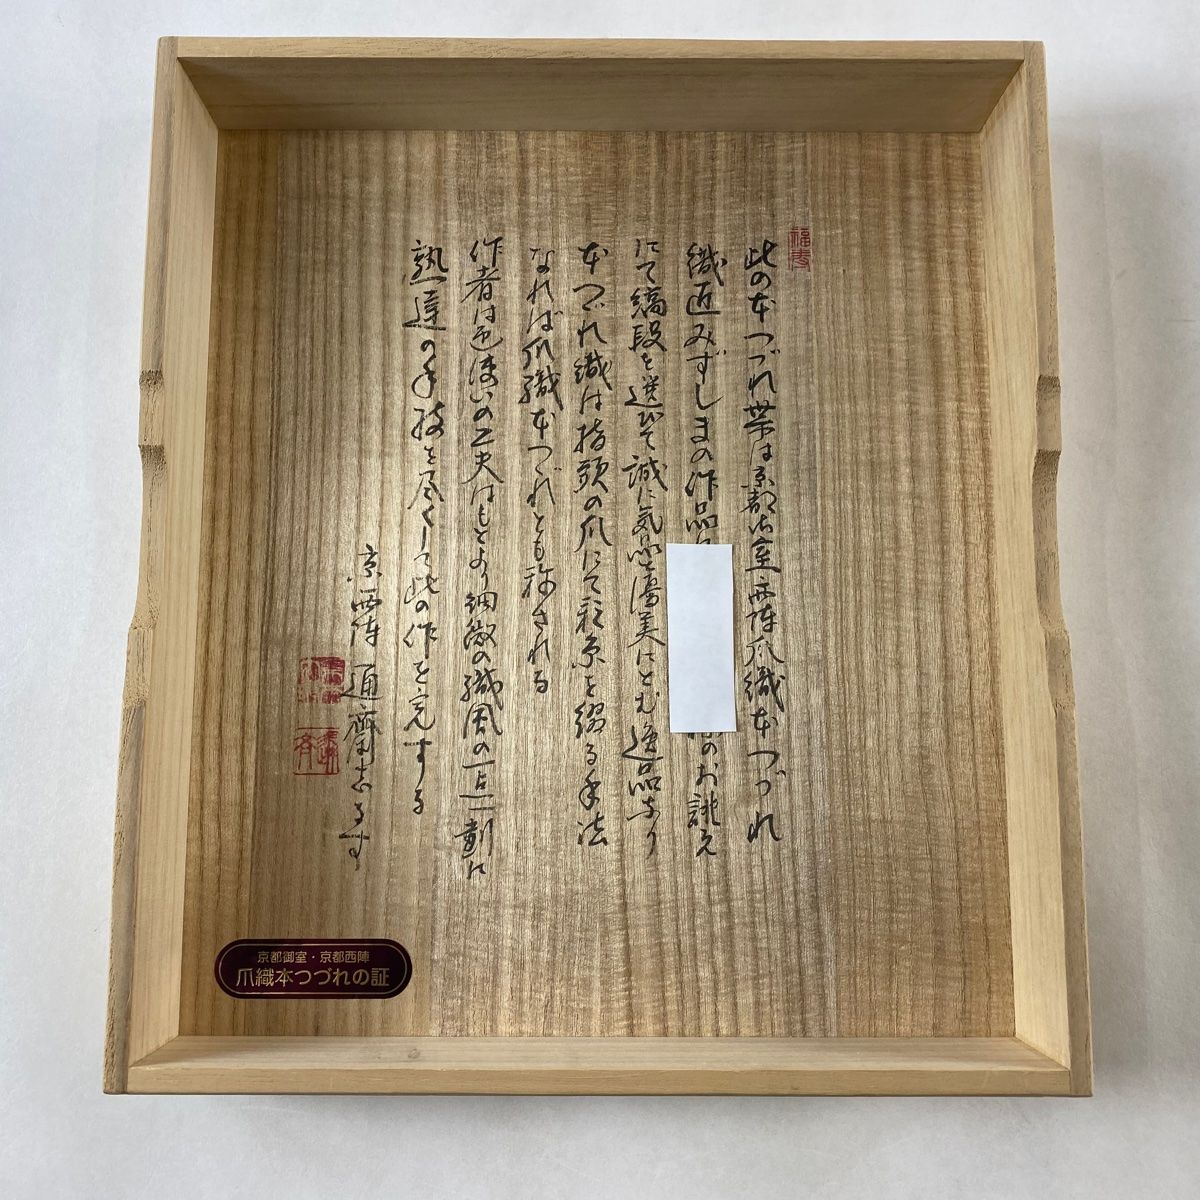 福寿
此の本つづれ帯は京都御室西陣爪織本つづれ
織匠みずしまの作品に
のお誂え
にて縞段を選びて誠に気品と優美にとむ逸品なり
本つづれ織は指頭の爪にて彩糸を綴る手法
なれば爪織本つづれとも称される
作者は色使いの工夫はもとより細微の織風の一点一劃に
熟達の手技を尽くして此の作を完する
京西陣 通斎しるす
京都御室・京都西陣
爪織本つづれの証